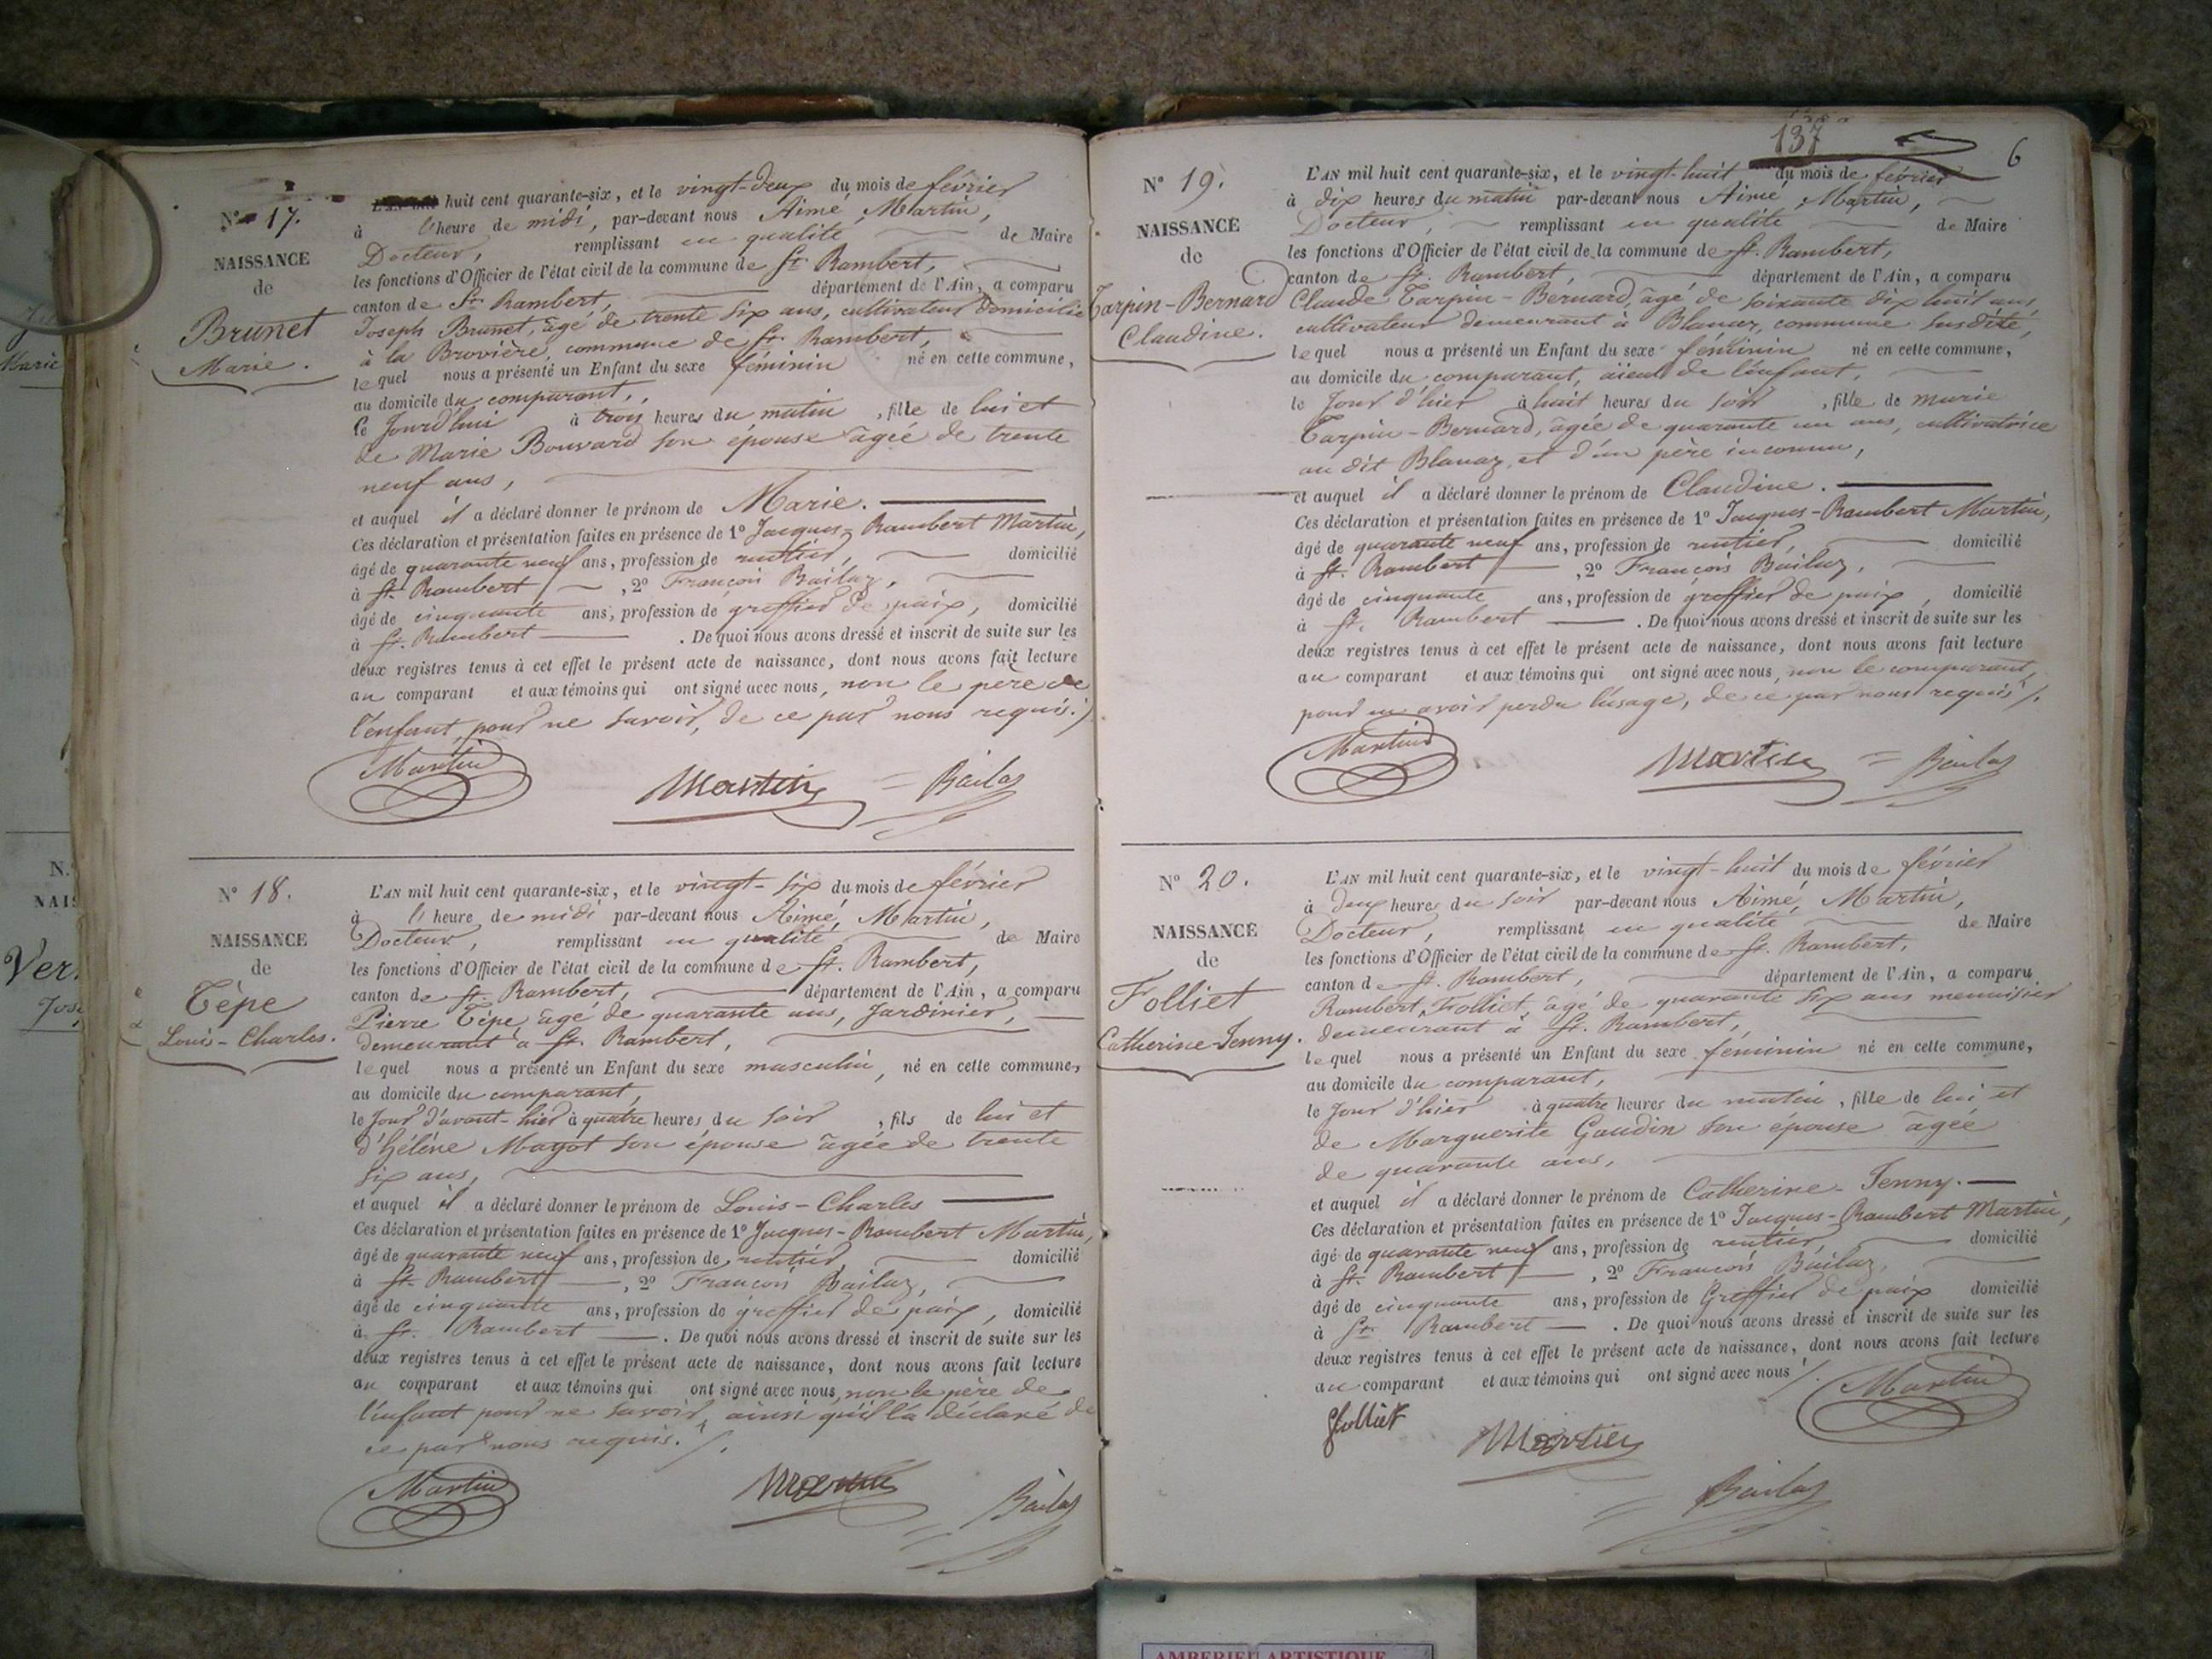 N° 17.
NAISSANCE
de
Brunet
Marie.
huit cent quarante-six, et le vingt-deux du mois de février
à l'heure de midi, par-devant nous Aimé, Martin,
Docteur, remplissant en qualité de Maire
les fonctions d'Officier de l'état civil de la commune de St. Rambert,
canton de St. Rambert, département de l'Ain, a comparu
Joseph Brunet, âgé de trente six ans, cultivateur domicilié
à la Brovière, commune de St. Rambert,
lequel nous a présenté un Enfant du sexe féminin né en cette commune,
au domicile du comparant,
le jourd'hui à trois heures du matin, fille de lui et
de Marie Bouvard son épouse âgée de trente
neuf ans,
et auquel il a déclaré donner le prénom de Marie.
Ces déclaration et présentation faites en présence de 1° Jacques-Rambert Martin,
âgé de quarante neuf ans, profession de rentier, domicilié
à St. Rambert, 2° François Bailaz,
âgé de cinquante ans, profession de greffier de paix, domicilié
à St. Rambert. De quoi nous avons dressé et inscrit de suite sur les
deux registres tenus à cet effet le présent acte de naissance, dont nous avons fait lecture
au comparant et aux témoins qui ont signé avec nous, non le père de
l'enfant, pour ne savoir, de ce par nous requis./
Martin
Martin
Bailaz
N° 18.
NAISSANCE
de
Tèpe
Louis-Charles.
L'AN mil huit cent quarante-six, et le vingt-six du mois de février
à l'heure de midi par-devant nous Aimé, Martin,
Docteur, remplissant en qualité de Maire
les fonctions d'Officier de l'état civil de la commune de St. Rambert,
canton de St. Rambert, département de l'Ain, a comparu
Pierre Tèpe, âgé de quarante ans, Jardinier,
demeurant à St. Rambert,
lequel nous a présenté un Enfant du sexe masculin, né en cette commune,
au domicile du comparant,
le jour d'avant-hier à quatre heures du soir, fils de lui et
d'Hélène Magot son épouse âgée de trente
six ans,
et auquel il a déclaré donner le prénom de Louis-Charles
Ces déclaration et présentation faites en présence de 1° Jacques-Rambert Martin,
âgé de quarante neuf ans, profession de rentier, domicilié
à St. Rambert, 2° François Bailaz,
âgé de cinquante ans, profession de greffier de paix, domicilié
à St. Rambert. De quoi nous avons dressé et inscrit de suite sur les
deux registres tenus à cet effet le présent acte de naissance, dont nous avons fait lecture
au comparant et aux témoins qui ont signé avec nous, non le père de
l'enfant pour ne savoir, ainsi qu'il l'a déclaré de
ce par nous requis./.
Martin
Martin
Bailaz
137
6
N° 19.
NAISSANCE
de
Tarpin-Bernard
Claudine.
L'AN mil huit cent quarante-six, et le vingt-huit du mois de février
à dix heures du matin par-devant nous Aimé, Martin,
Docteur, remplissant en qualité de Maire
les fonctions d'Officier de l'état civil de la commune de St. Rambert,
canton de St. Rambert, département de l'Ain, a comparu
Claude Tarpin-Bernard, âgé de soixante dix huit ans,
cultivateur demeurant à Blanaz, commune susdite,
lequel nous a présenté un Enfant du sexe féminin né en cette commune,
au domicile du comparant, aïeul de l'enfant,
le jour d'hier à huit heures du soir, fille de marie
Tarpin-Bernard, âgée de quarante un ans, cultivatrice
au dit Blanaz, et d'un père inconnu,
et auquel il a déclaré donner le prénom de Claudine.
Ces déclaration et présentation faites en présence de 1° Jacques-Rambert Martin,
âgé de quarante neuf ans, profession de rentier, domicilié
à St. Rambert, 2° François Bailaz,
âgé de cinquante ans, profession de greffier de paix, domicilié
à St. Rambert. De quoi nous avons dressé et inscrit de suite sur les
deux registres tenus à cet effet le présent acte de naissance, dont nous avons fait lecture
au comparant et aux témoins qui ont signé avec nous, non le comparant,
pour en avoir perdu l'usage, de ce par nous requis./.
Martin
Martin
Bailaz
N° 20.
NAISSANCE
de
Folliet
Catherine-Jenny.
L'AN mil huit cent quarante-six, et le vingt-huit du mois de février
à deux heures du soir par-devant nous Aimé, Martin,
Docteur, remplissant en qualité de Maire
les fonctions d'Officier de l'état civil de la commune de St. Rambert,
canton de St. Rambert, département de l'Ain, a comparu
Rambert Folliet, âgé de quarante six ans menuisier
demeurant à St. Rambert,
lequel nous a présenté un Enfant du sexe féminin né en cette commune,
au domicile du comparant,
le jour d'hier à quatre heures du matin, fille de lui et
de Marguerite Gaudin son épouse âgée
de quarante ans,
et auquel il a déclaré donner le prénom de Catherine-Jenny.
Ces déclaration et présentation faites en présence de 1° Jacques-Rambert Martin,
âgé de quarante neuf ans, profession de rentier, domicilié
à St. Rambert, 2° François Bailaz,
âgé de cinquante ans, profession de Greffier de paix domicilié
à St. Rambert. De quoi nous avons dressé et inscrit de suite sur les
deux registres tenus à cet effet le présent acte de naissance, dont nous avons fait lecture
au comparant et aux témoins qui ont signé avec nous./.
Folliet
Martin
Martin
Bailaz
AMBERIEU ARTISTIQUE